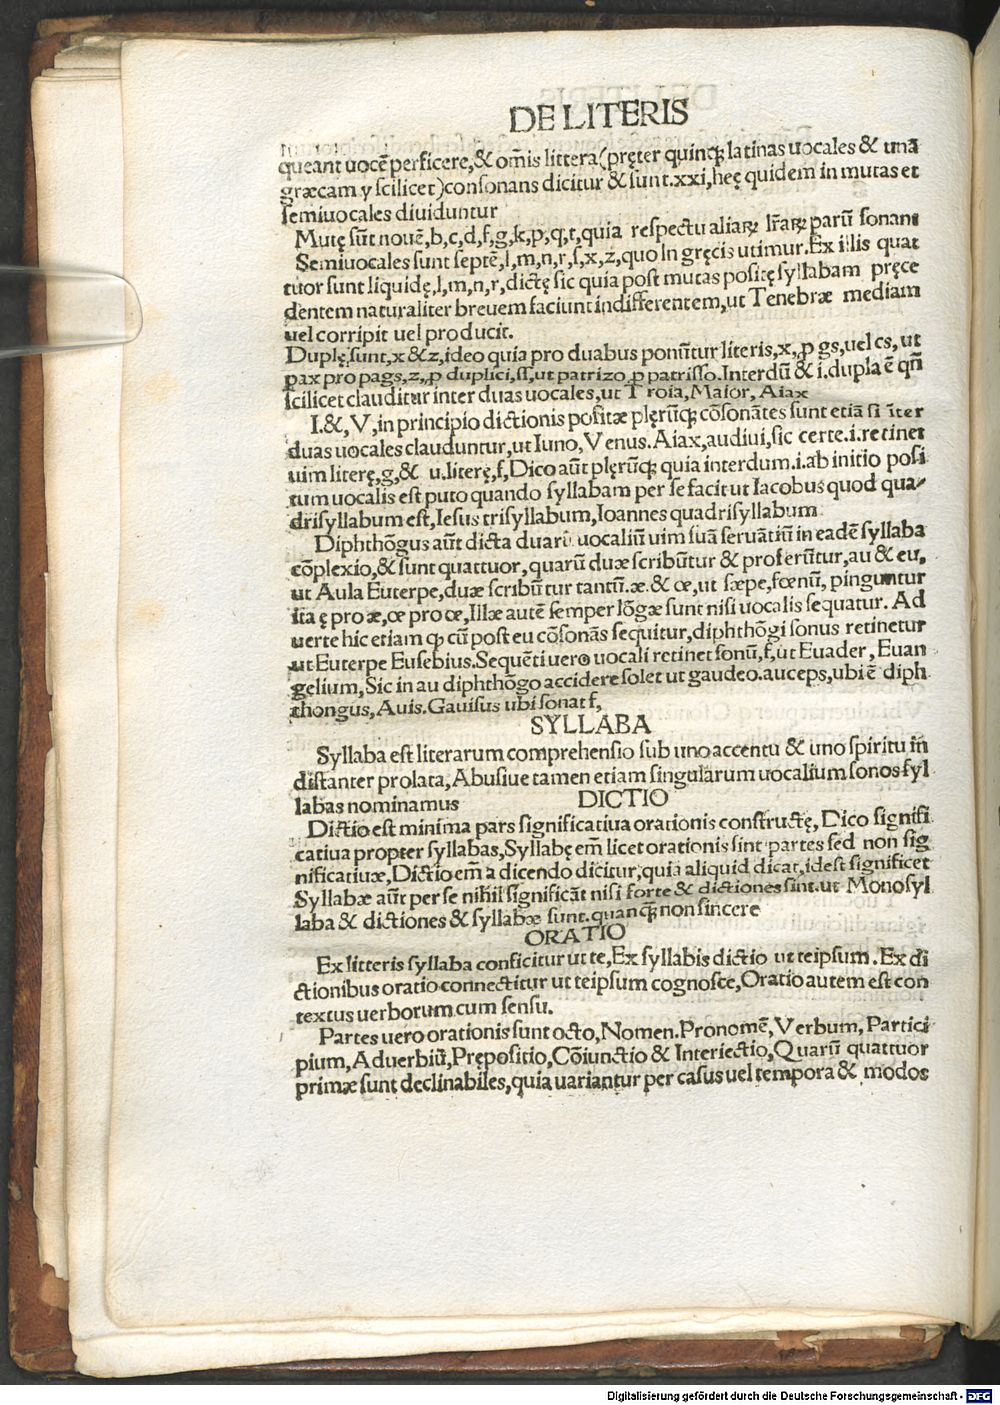 DE LITERIS
queant uocē perficere,& om̄is littera(pręter quinq̨ latinas uocales & unā
græcam y scilicet)consonans dicitur & sunt.xxi,hęę quidem in mutas et
semiuocales diuiduntur
Mutę sūt nouē,b,c,d,f,g,k,p,q,t,quia respectu aliaꝝ lr̄aꝝ parū sonant
Semiuocales sunt septē,l,m,n,r,s,x,z,quo in gręcis utimur.Ex illis quat
tuor sunt liquidę,l,m,n,r,dictę sic quia post mutas positę syllabam pręce
dentem naturaliter breuem faciunt indifferentem,ut Tenebræ mediam
uel corripit uel producit.
Duplę,sunt,x & z,ideo quia pro duabus ponūtur literis,x,ꝓ gs,uel cs,ut
pax pro pags,z,ꝓ duplici,ss,ut patrizo ꝓ patrisso.Interdū & i.dupla ē qn̄
scilicet clauditur inter duas uocales,ut Troia,Maior,Aiax
I.&,V,in principio dictionis positæ plęrūq̨ cōsonātes sunt etiā si īter
duas uocales clauduntur,ut Iuno,Venus.Aiax,audiui,sic certe.i.retinet
uim literę,g,& u.literę,f,Dico aūt plęrūq̨ quia interdum.i.ab initio posi
tum uocalis est puto quando syllabam per se facit ut Iacobus quod qua
drisyllabum est,Iesus trisyllabum,Ioannes quadrisyllabum
Diphthōgus aūt dicta duarū uocaliū uim suā seruātiū in eadē syllaba
cōplexio,& sunt quattuor,quarū duæ scribūtur & proferūtur,au & eu,
ut Aula Euterpe,duæ scribūtur tantū.æ.& œ,ut sæpe,fœnū,pinguntur
ita ę pro æ,œ pro œ,Illæ autē semper lōgæ sunt nisi uocalis sequatur. Ad
uerte hic etiam q̨ cū post eu cōsonās sequitur,diphthōgi sonus retinetur
ut Euterpe Eusebius.Sequēti uero uocali retinet sonū,f,ut Euader,Euan
gelium,Sic in au diphthōgo accidere solet ut gaudeo.auceps,ubi ē diph
thongus,Auis.Gauisus ubi sonat f,
SYLLABA
Syllaba est literarum comprehensio sub uno accentu & uno spiritu in
distanter prolata,Abusiue tamen etiam singularum uocalium sonos syl
labas nominamus DICTIO
Dictio est minima pars significatiua orationis constructę,Dico signifi
catiua propter syllabas,Syllabę em̄ licet orationis sint partes sed non sig
nificatiuæ,Dictio em̄ a dicendo dicitur,quia aliquid dicat,idest significet
Syllabæ aūt per se nihil significāt nisi forte & dictiones sint.ut Monosyl
laba & dictiones & syllabæ sunt.quanq̨ non sincere
ORATIO
Ex litteris syllaba conficitur ut te,Ex syllabis dictio ut teipsum.Ex di
ctionibus oratio connectitur ut teipsum cognosce,Oratio autem est con
textus uerborum cum sensu.
Partes uero orationis sunt octo,Nomen.Pronomē,Verbum,Partici
pium,Aduerbiū,Prępositio,Cōiunctio & Interiectio,Quarū quattuor
primæ sunt declinabiles,quia uariantur per casus uel tempora & modos
Digitalisierung gefördert durch die Deutsche Forschungsgemeinschaft - DFG